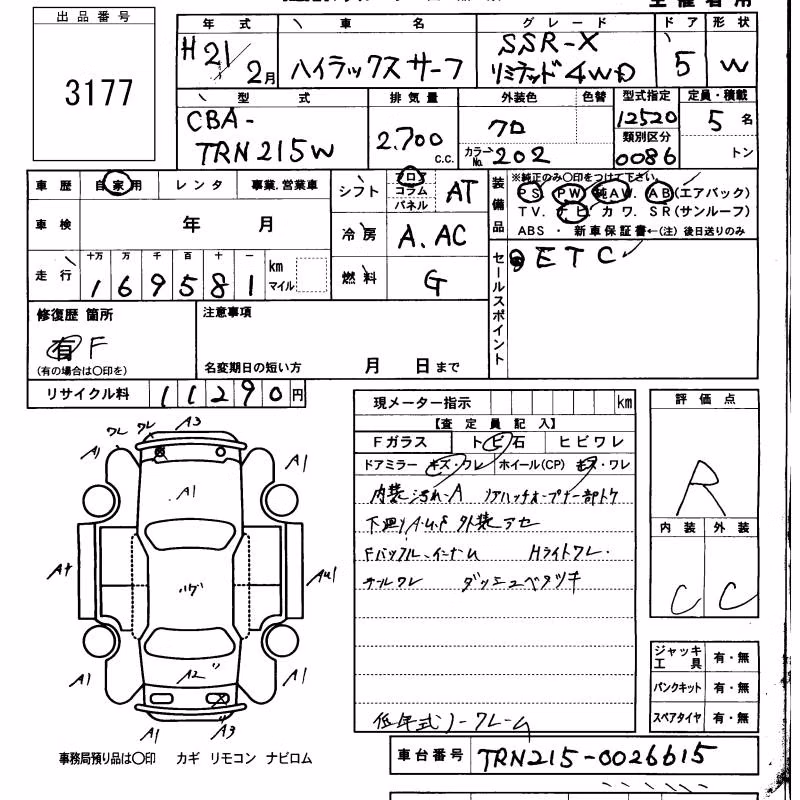 出品番号
3177
年式 車名 グレード ドア 形状
H21/2月 ハイラックスサーフ SSR-X リミテッド4WD 5 W
型式 排気量 外装色 色替 型式指定 定員・積載
CBA-TRN215W 2.700 c.c. クロ カラーNo. 202 12520 類別区分 0086 5名 トン
車歴 自家用 レンタ 事業.営業車
シフト フロア コラム パネル AT
車検 年 月
冷房 A.AC
走行 十万 万 千 百 十 一 km マイル
169581
燃料 G
装備品
※純正のみ〇印をつけて下さい。
PS. PW. 純AW. AB(エアバック)
TV. ナビ. カワ. SR(サンルーフ)
ABS ・ 新車保証書←(注) 後日送りのみ
セールスポイント
ETC
修復歴 箇所
有 F
(有の場合は〇印を)
注意事項
名変期日の短い方 月 日まで
リサイクル料 11290円
現メーター指示 km
【査定員記入】
Fガラス トビ石 ヒビワレ
ドアミラー キズ・ワレ ホイール(CP) キズ・ワレ
内装汚れ-A リアハッチオープナー部トケ
下廻りA.U.S 外装アセ
Hライトワレ.
ダッシュベタツキ
低年式ノークレーム
評価点
R
内装 外装
C C
ジャッキ 工具 有・無
パンクキット 有・無
スペアタイヤ 有・無
ワレ ワレ A3
A1 A1
A1
A4 ハゲ AU1
A1 A2 A1
A1 A3
事務局預り品は〇印 カギ リモコン ナビロム
車台番号 TRN215-0026615